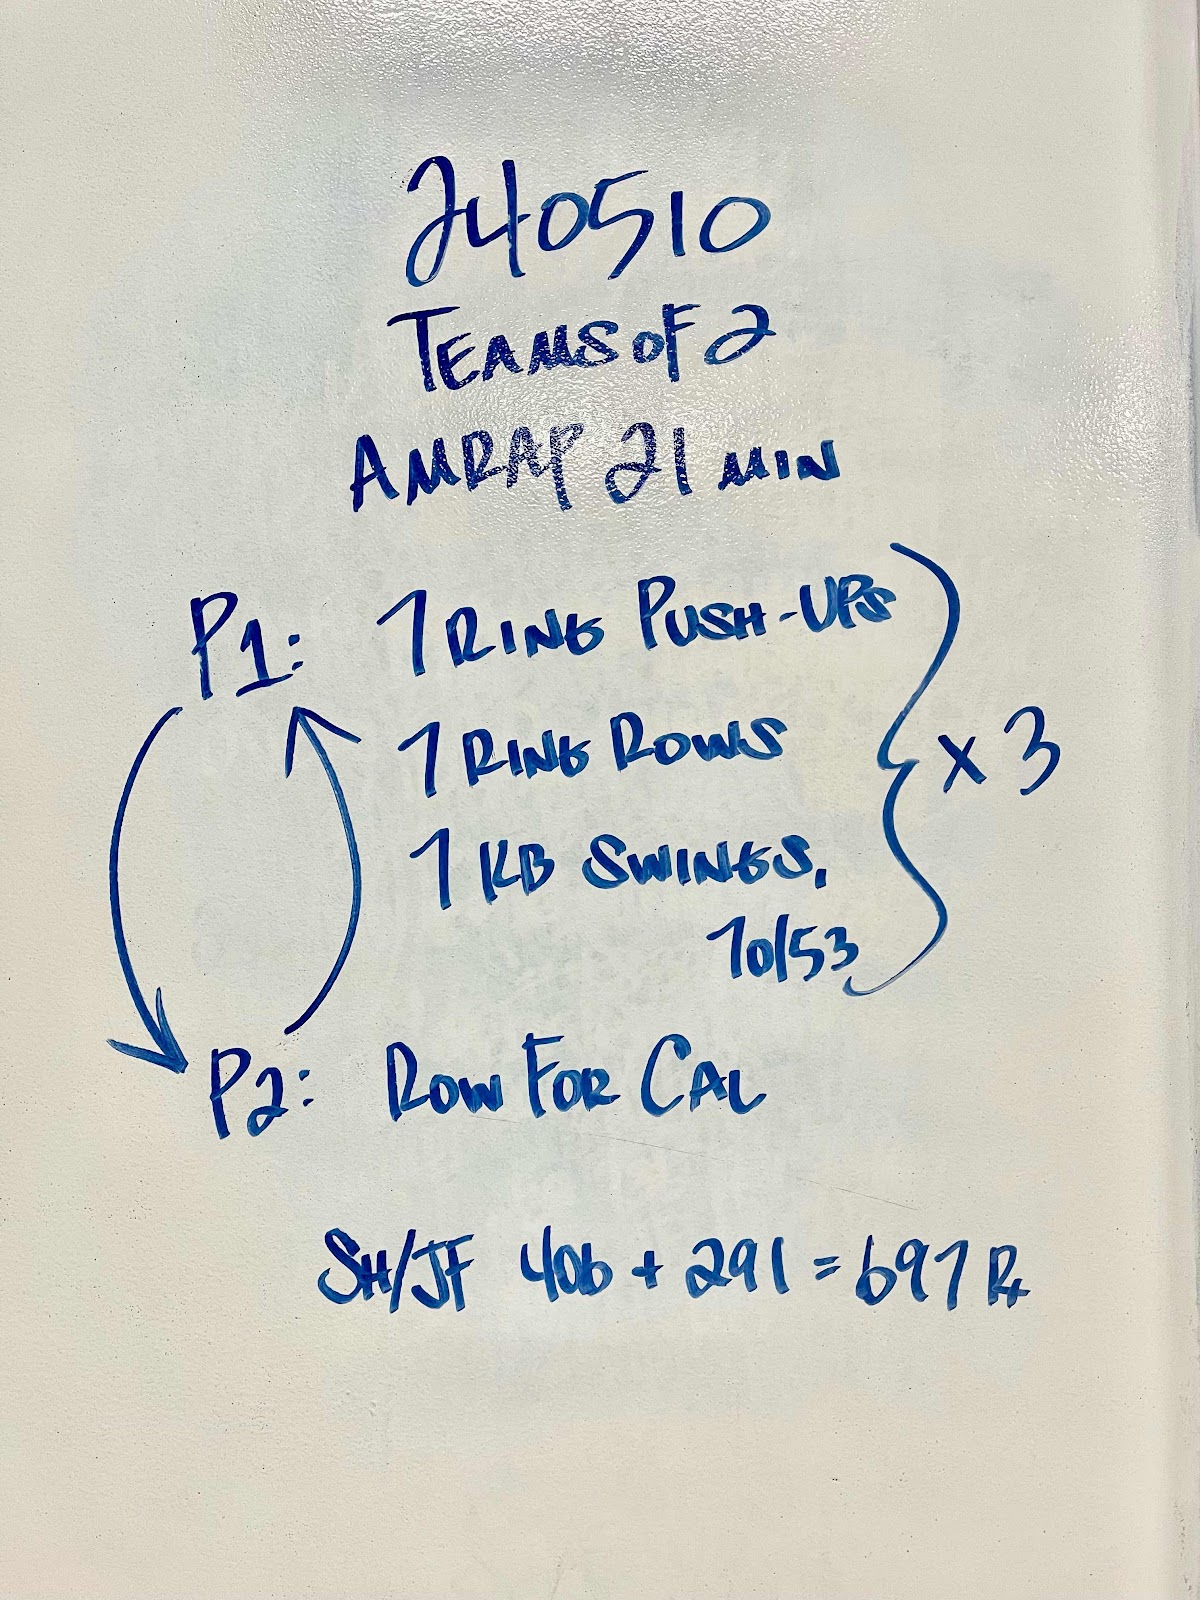 240510
TEAMS OF 2
AMRAP 21 MIN
P1: 7 RING PUSH-UPS
7 RING ROWS
x 3
7 KB SWINGS,
70/53
P2: ROW FOR CAL
SH/JF 406 + 291 = 697 Rx